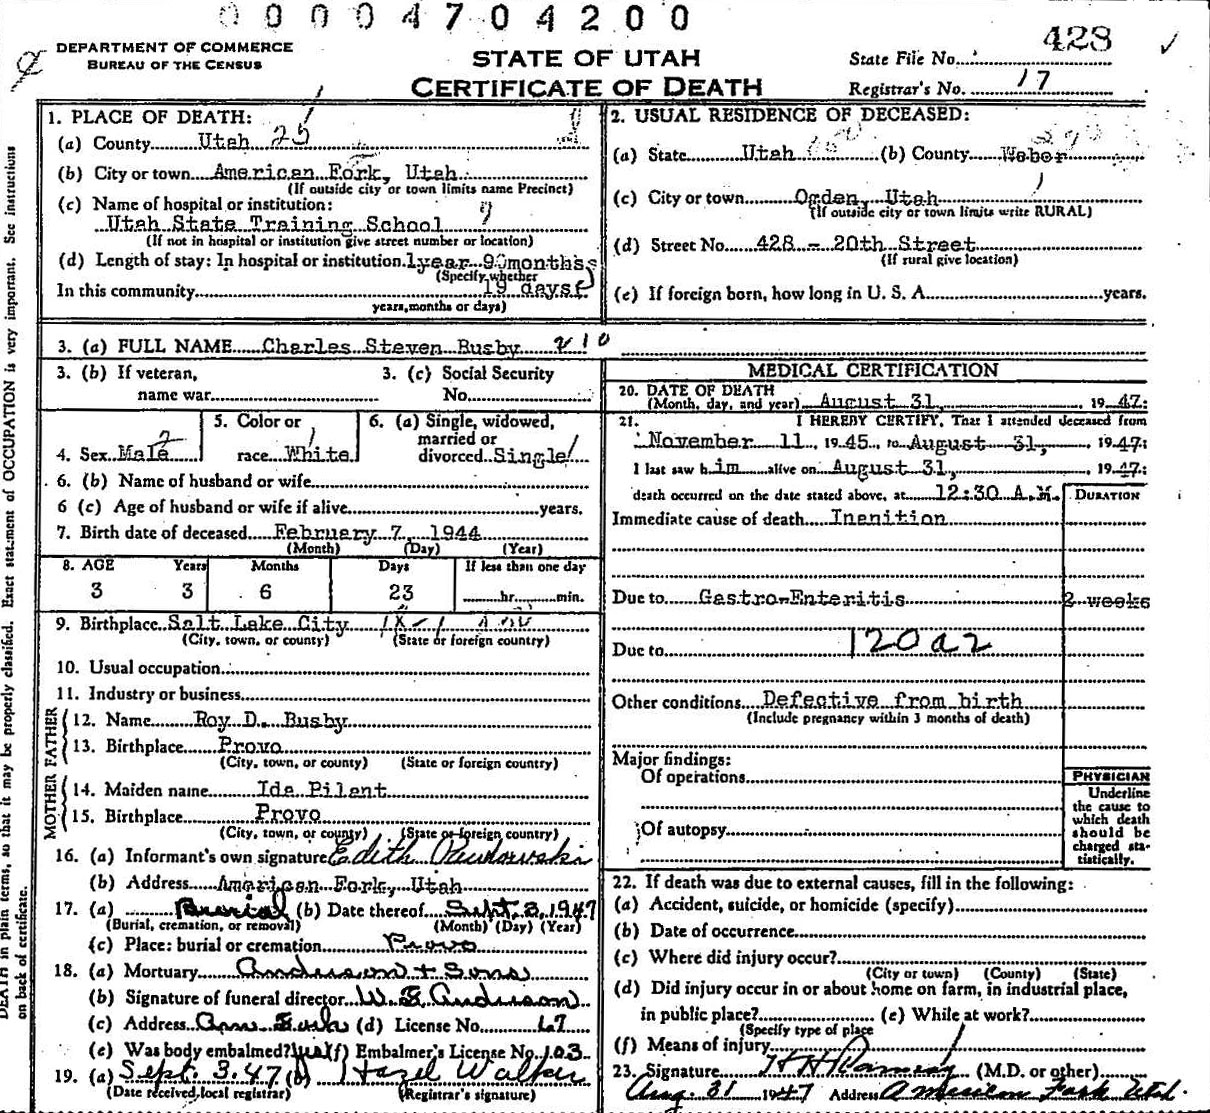 00004704200
DEPARTMENT OF COMMERCE
BUREAU OF THE CENSUS
STATE OF UTAH
CERTIFICATE OF DEATH
State File No. 428
Registrar's No. 17
1. PLACE OF DEATH:
(a) County Utah 25
(b) City or town American Fork, Utah
(If outside city or town limits name Precinct)
(c) Name of hospital or institution:
Utah State Training School
(If not in hospital or institution give street number or location)
(d) Length of stay: In hospital or institution. 1 year 9 months
(Specify whether
19 days
In this community
years, months or days)
2. USUAL RESIDENCE OF DECEASED:
(a) State Utah (b) County Weber
(c) City or town Ogden, Utah
(If outside city or town limits write RURAL)
(d) Street No. 428 - 20th Street
(If rural give location)
(e) If foreign born, how long in U. S. A. years.
3. (a) FULL NAME Charles Steven Busby 210
3. (b) If veteran,
name war
3. (c) Social Security
No.
4. Sex Male
5. Color or
race White
6. (a) Single, widowed,
married or
divorced Single
6. (b) Name of husband or wife
6 (c) Age of husband or wife if alive years.
7. Birth date of deceased February 7, 1944
(Month) (Day) (Year)
8. AGE Years Months Days If less than one day
3 3 6 23 hr. min.
9. Birthplace Salt Lake City
(City, town, or county) (State or foreign country)
10. Usual occupation
11. Industry or business
FATHER
12. Name Roy D. Busby
13. Birthplace Provo
(City, town, or county) (State or foreign country)
MOTHER
14. Maiden name Ida Pilent
15. Birthplace Provo
(City, town, or county) (State or foreign country)
16. (a) Informant's own signature Edith
(b) Address American Fork, Utah
17. (a) Burial (b) Date thereof Sept. 3, 1947
(Burial, cremation, or removal) (Month) (Day) (Year)
(c) Place: burial or cremation Provo
18. (a) Mortuary Anderson + Sons
(b) Signature of funeral director W. E. Anderson
(c) Address Am. Fork (d) License No. 67
(e) Was body embalmed? yes (f) Embalmer's License No. 103
19. (a) Sept. 3. 47 (b) Hazel Walker
(Date received local registrar) (Registrar's signature)
MEDICAL CERTIFICATION
20. DATE OF DEATH
(Month, day, and year) August 31, 1947:
21. I HEREBY CERTIFY, That I attended deceased from
November 11, 1945, to August 31, 1947:
I last saw him alive on August 31, 1947:
death occurred on the date stated above, at 12:30 A.M.
DURATION
Immediate cause of death Inenition
Due to Gastro-Enteritis 2 weeks
Due to 120a2
Other conditions Defective from birth
(Include pregnancy within 3 months of death)
Major findings:
Of operations
Of autopsy
PHYSICIAN
Underline
the cause to
which death
should be
charged sta-
tistically.
22. If death was due to external causes, fill in the following:
(a) Accident, suicide, or homicide (specify)
(b) Date of occurrence
(c) Where did injury occur?
(City or town) (County) (State)
(d) Did injury occur in or about home on farm, in industrial place,
in public place? (e) While at work?
(Specify type of place
(f) Means of injury
23. Signature H H Ramsey (M.D. or other)
Aug. 31 1947 Address American Fork Utah.
DEATH in plain terms, so that it may be properly classified. Exact statement of OCCUPATION is very important. See instructions
on back of certificate.